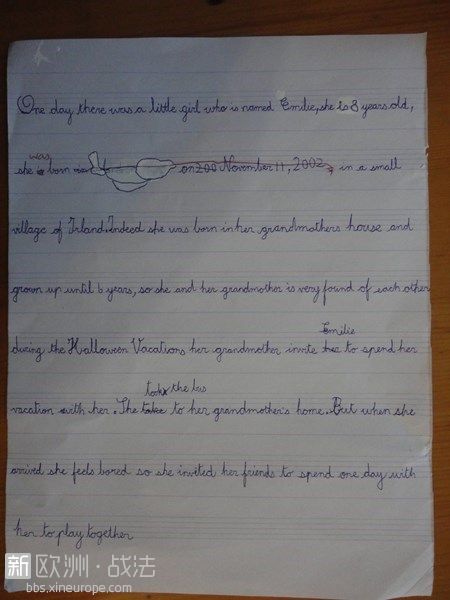 One day there was a little girl who is named Emilie, she is 8 years old,
was
she is born on 200 November 11, 2002 in a small
village of Irland. Indeed she was born in her grandmothers house and
grown up until 6 years, so she and her grandmother is very found of each other
Emilie
during the Halloween Vacations her grandmother invite her to spend her
took the bus
vacation with her. The take to her grandmother's home. But when she
arrived she feels bored so she invited her friends to spend one day with
her to play together
新欧洲·战法
bbs.xineurope.com